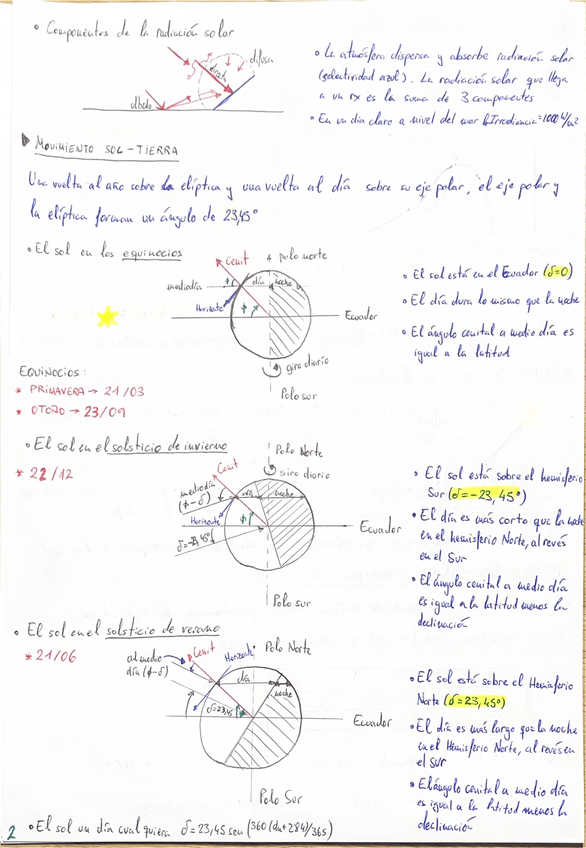 • Componentes de la radiación solar
directa
difusa
albedo
• La atmósfera dispersa y absorbe radiación solar
(selectividad azul). La radiación solar que llega
a un rx es la suma de 3 componentes
• En un dia claro a nivel del mar Irradiancia=1000W/m²
▶ MOVIMIENTO SOL-TIERRA
Una vuelta al año sobre la elíptica y una vuelta al día sobre su eje polar, el eje polar y
la elíptica forman un ángulo de 23,45°
• El sol en los equinocios
Cenit
polo norte
mediodía
día
noche
Horizonte
ϕ
Ecuador
giro diario
Polo sur
• El sol está en el Ecuador (δ=0)
• El día dura lo mismo que la noche
• El ángulo cenital a medio día es
igual a la latitud
EQUINOCIOS:
* PRIMAVERA → 21/03
* OTOÑO → 23/09
• El sol en el solsticio de invierno
* 22/12
Polo Norte
Cenit
giro diario
mediodía
(ϕ-δ)
día
noche
Horizonte
ϕ
Ecuador
δ=-23,45°
Polo sur
• El sol está sobre el hemisferio
Sur (δ=-23,45°)
• El día es más corto que la noche
en el hemisferio Norte, al revés
en el Sur
• El ángulo cenital a medio día
es igual a la latitud menos la
declinación
• El sol en el solsticio de verano
* 21/06
Cenit
Horizonte
Polo Norte
al medio
día (ϕ-δ)
día
noche
δ=23,45
Ecuador
Polo Sur
• El sol está sobre el Hemisferio
Norte (δ=23,45°)
• El día es más largo que la noche
en el Hemisferio Norte, al revés en
el Sur
• El ángulo cenital a medio día
es igual a la latitud menos la
declinación
2
• El sol un día cualquiera δ=23,45 sen(360(dn+284)/365)